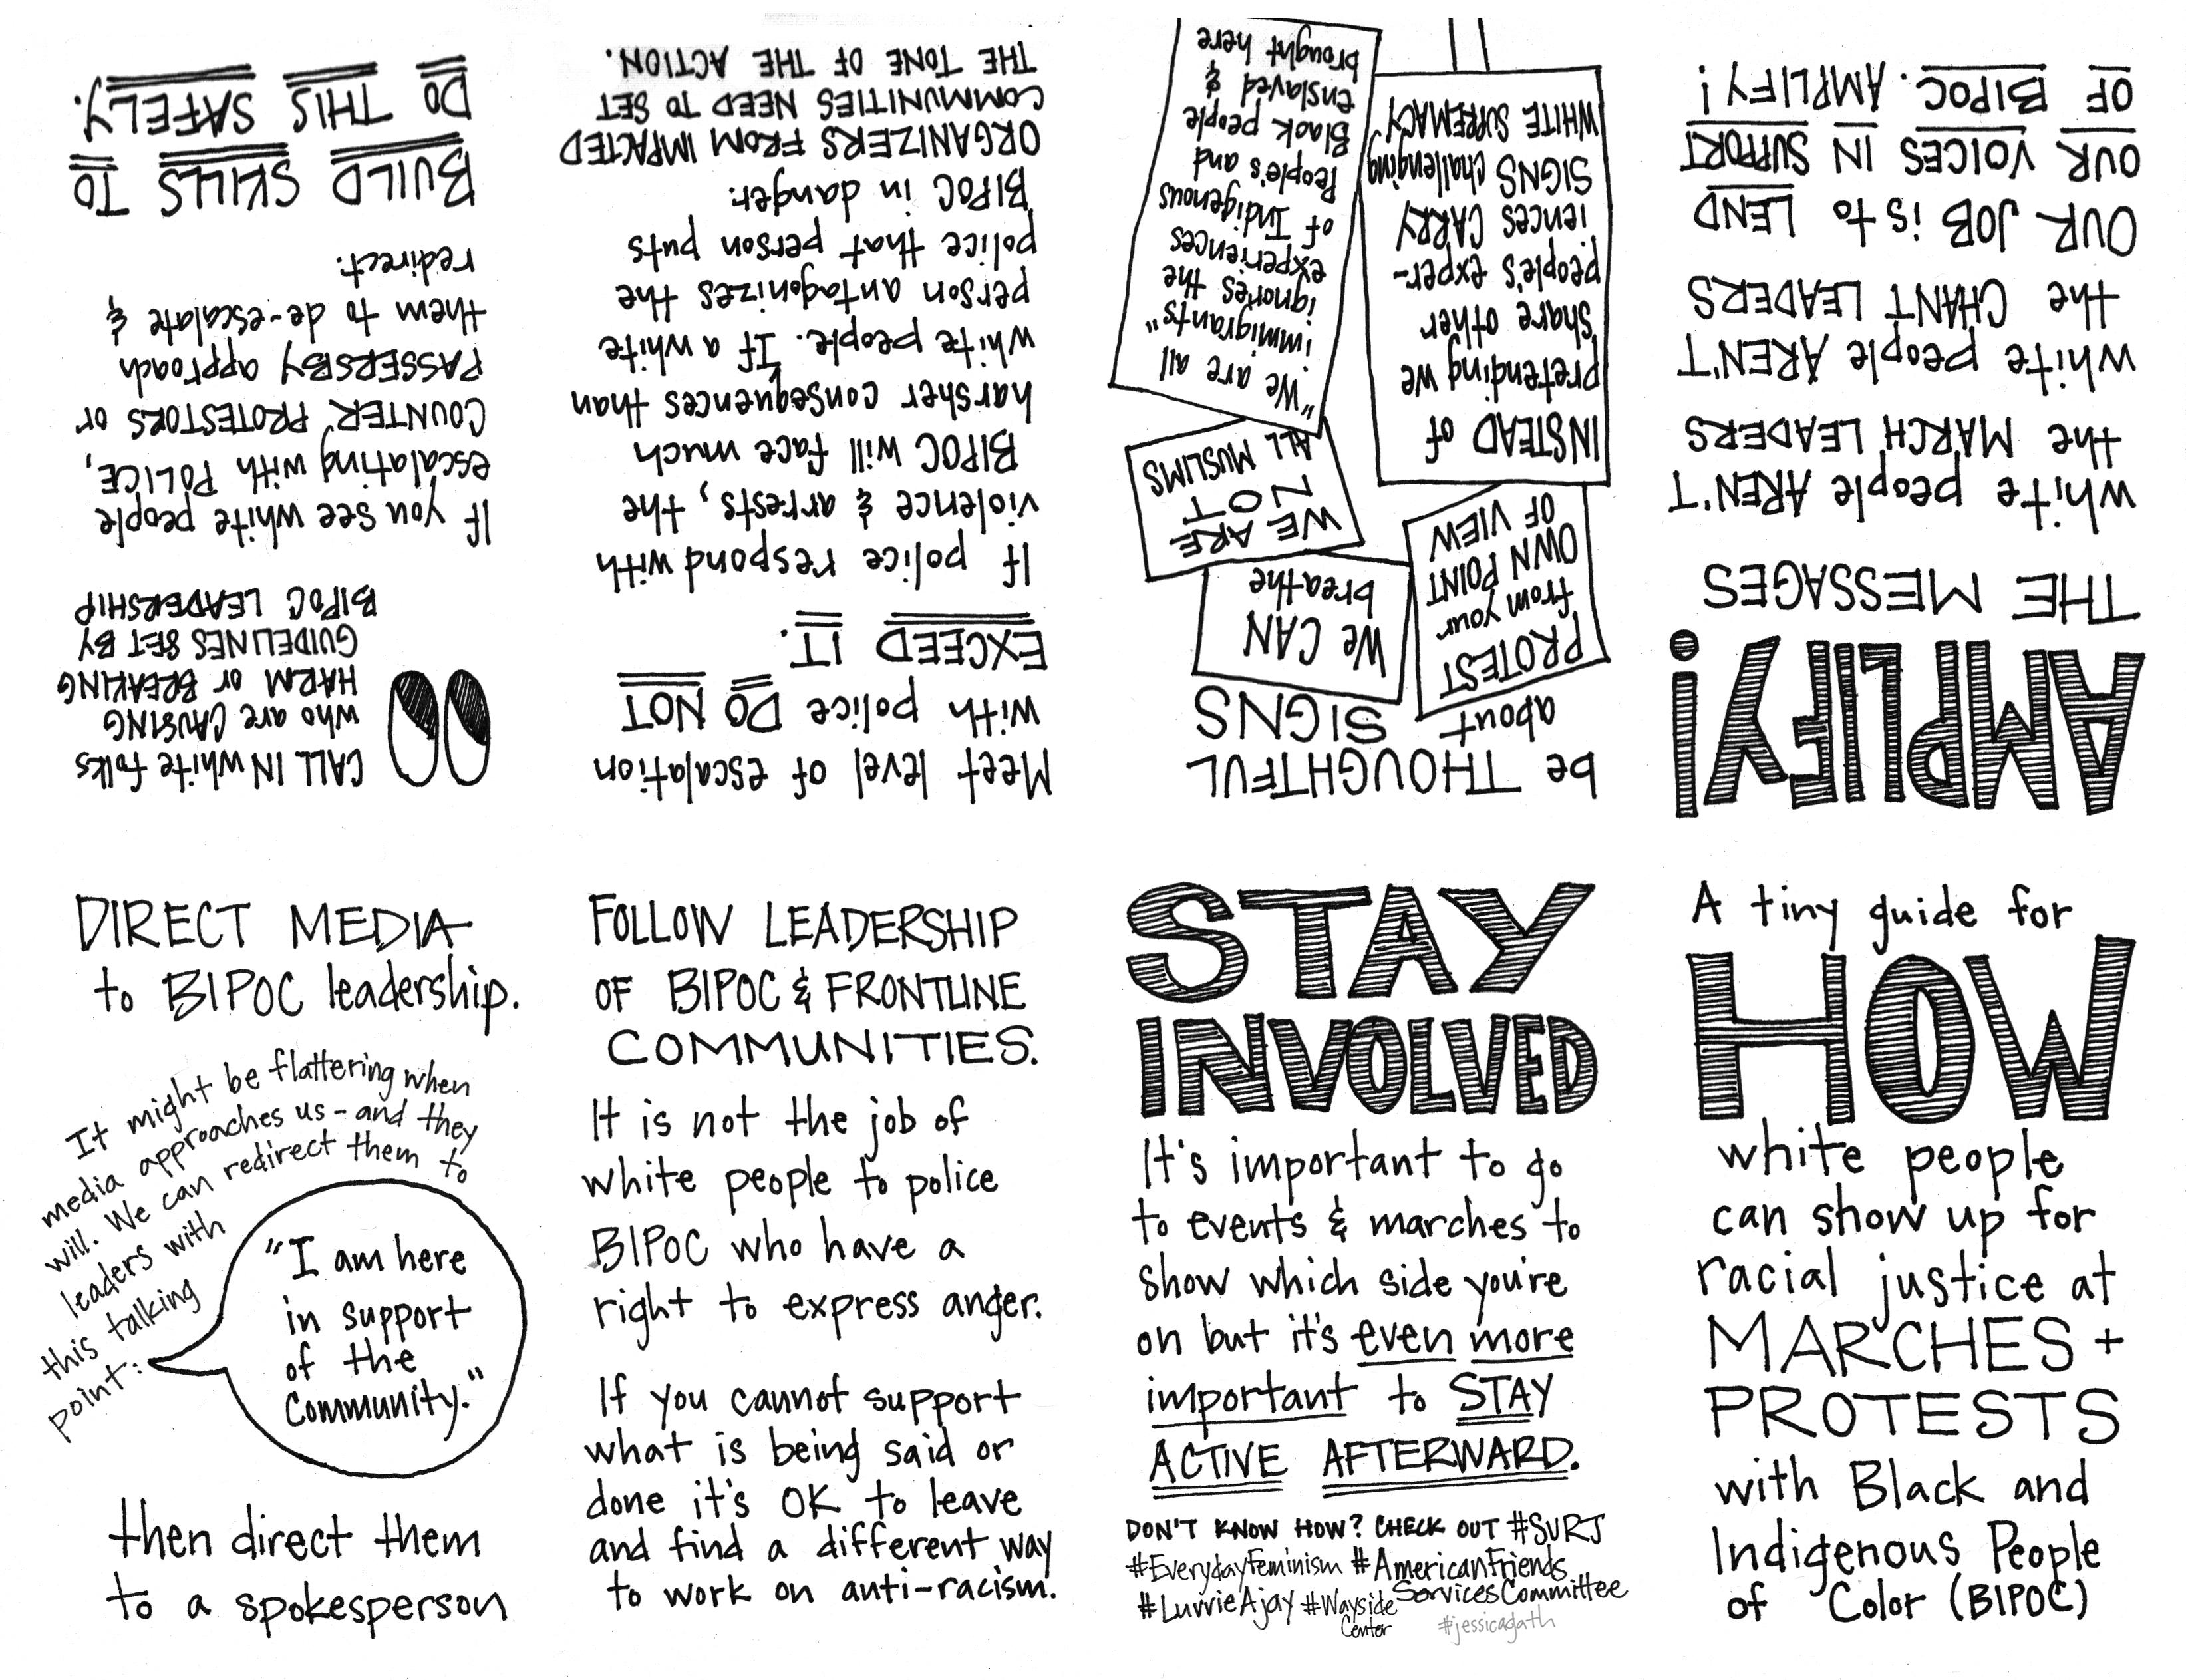 A tiny guide for
HOW
white people
can show up for
racial justice at
MARCHES +
PROTESTS
with Black and
Indigenous People
of Color (BIPOC)
AMPLIFY!
THE MESSAGES
white people AREN'T
the MARCH LEADERS
white people AREN'T
the CHANT LEADERS
OUR JOB is to LEND
OUR VOICES IN SUPPORT
OF BIPOC. AMPLIFY!
be THOUGHTFUL
about SIGNS
PROTEST
from your
OWN POINT
OF VIEW
We CAN
breathe
WE ARE
NOT
ALL MUSLIMS
INSTEAD of
pretending we
share other
people's exper-
iences CARRY
SIGNS challenging
WHITE SUPREMACY
"We are all
immigrants"
ignores the
experiences
of Indigenous
People's and
Black people
enslaved &
brought here
Meet level of escalation
with police DO NOT
EXCEED IT.
If police respond with
violence & arrests, the
BIPOC will face much
harsher consequences than
white people. If a white
person antagonizes the
police that person puts
BIPOC in danger.
ORGANIZERS FROM IMPACTED
COMMUNITIES NEED TO SET
THE TONE OF THE ACTION.
CALL IN white folks
who are CAUSING
HARM or BREAKING
GUIDELINES SET BY
BIPOC LEADERSHIP
If you see white people
escalating with POLICE,
COUNTER PROTESTORS or
PASSERSBY approach
them to de-escalate &
redirect.
BUILD SKILLS TO
DO THIS SAFELY.
DIRECT MEDIA
to BIPOC leadership.
It might be flattering when
media approaches us - and they
will. We can redirect them to
leaders with
this talking
point:
"I am here
in support
of the
Community."
then direct them
to a spokesperson
FOLLOW LEADERSHIP
OF BIPOC & FRONTLINE
COMMUNITIES.
It is not the job of
white people to police
BIPOC who have a
right to express anger.
If you cannot support
what is being said or
done it's OK to leave
and find a different way
to work on anti-racism.
STAY
INVOLVED
It's important to go
to events & marches to
show which side you're
on but it's even more
important to STAY
ACTIVE AFTERWARD.
DON'T KNOW HOW? CHECK OUT #SURJ
#EverydayFeminism #AmericanFriends
ServicesCommittee
#LuvvieAjay #Wayside
Center
#jessicagath